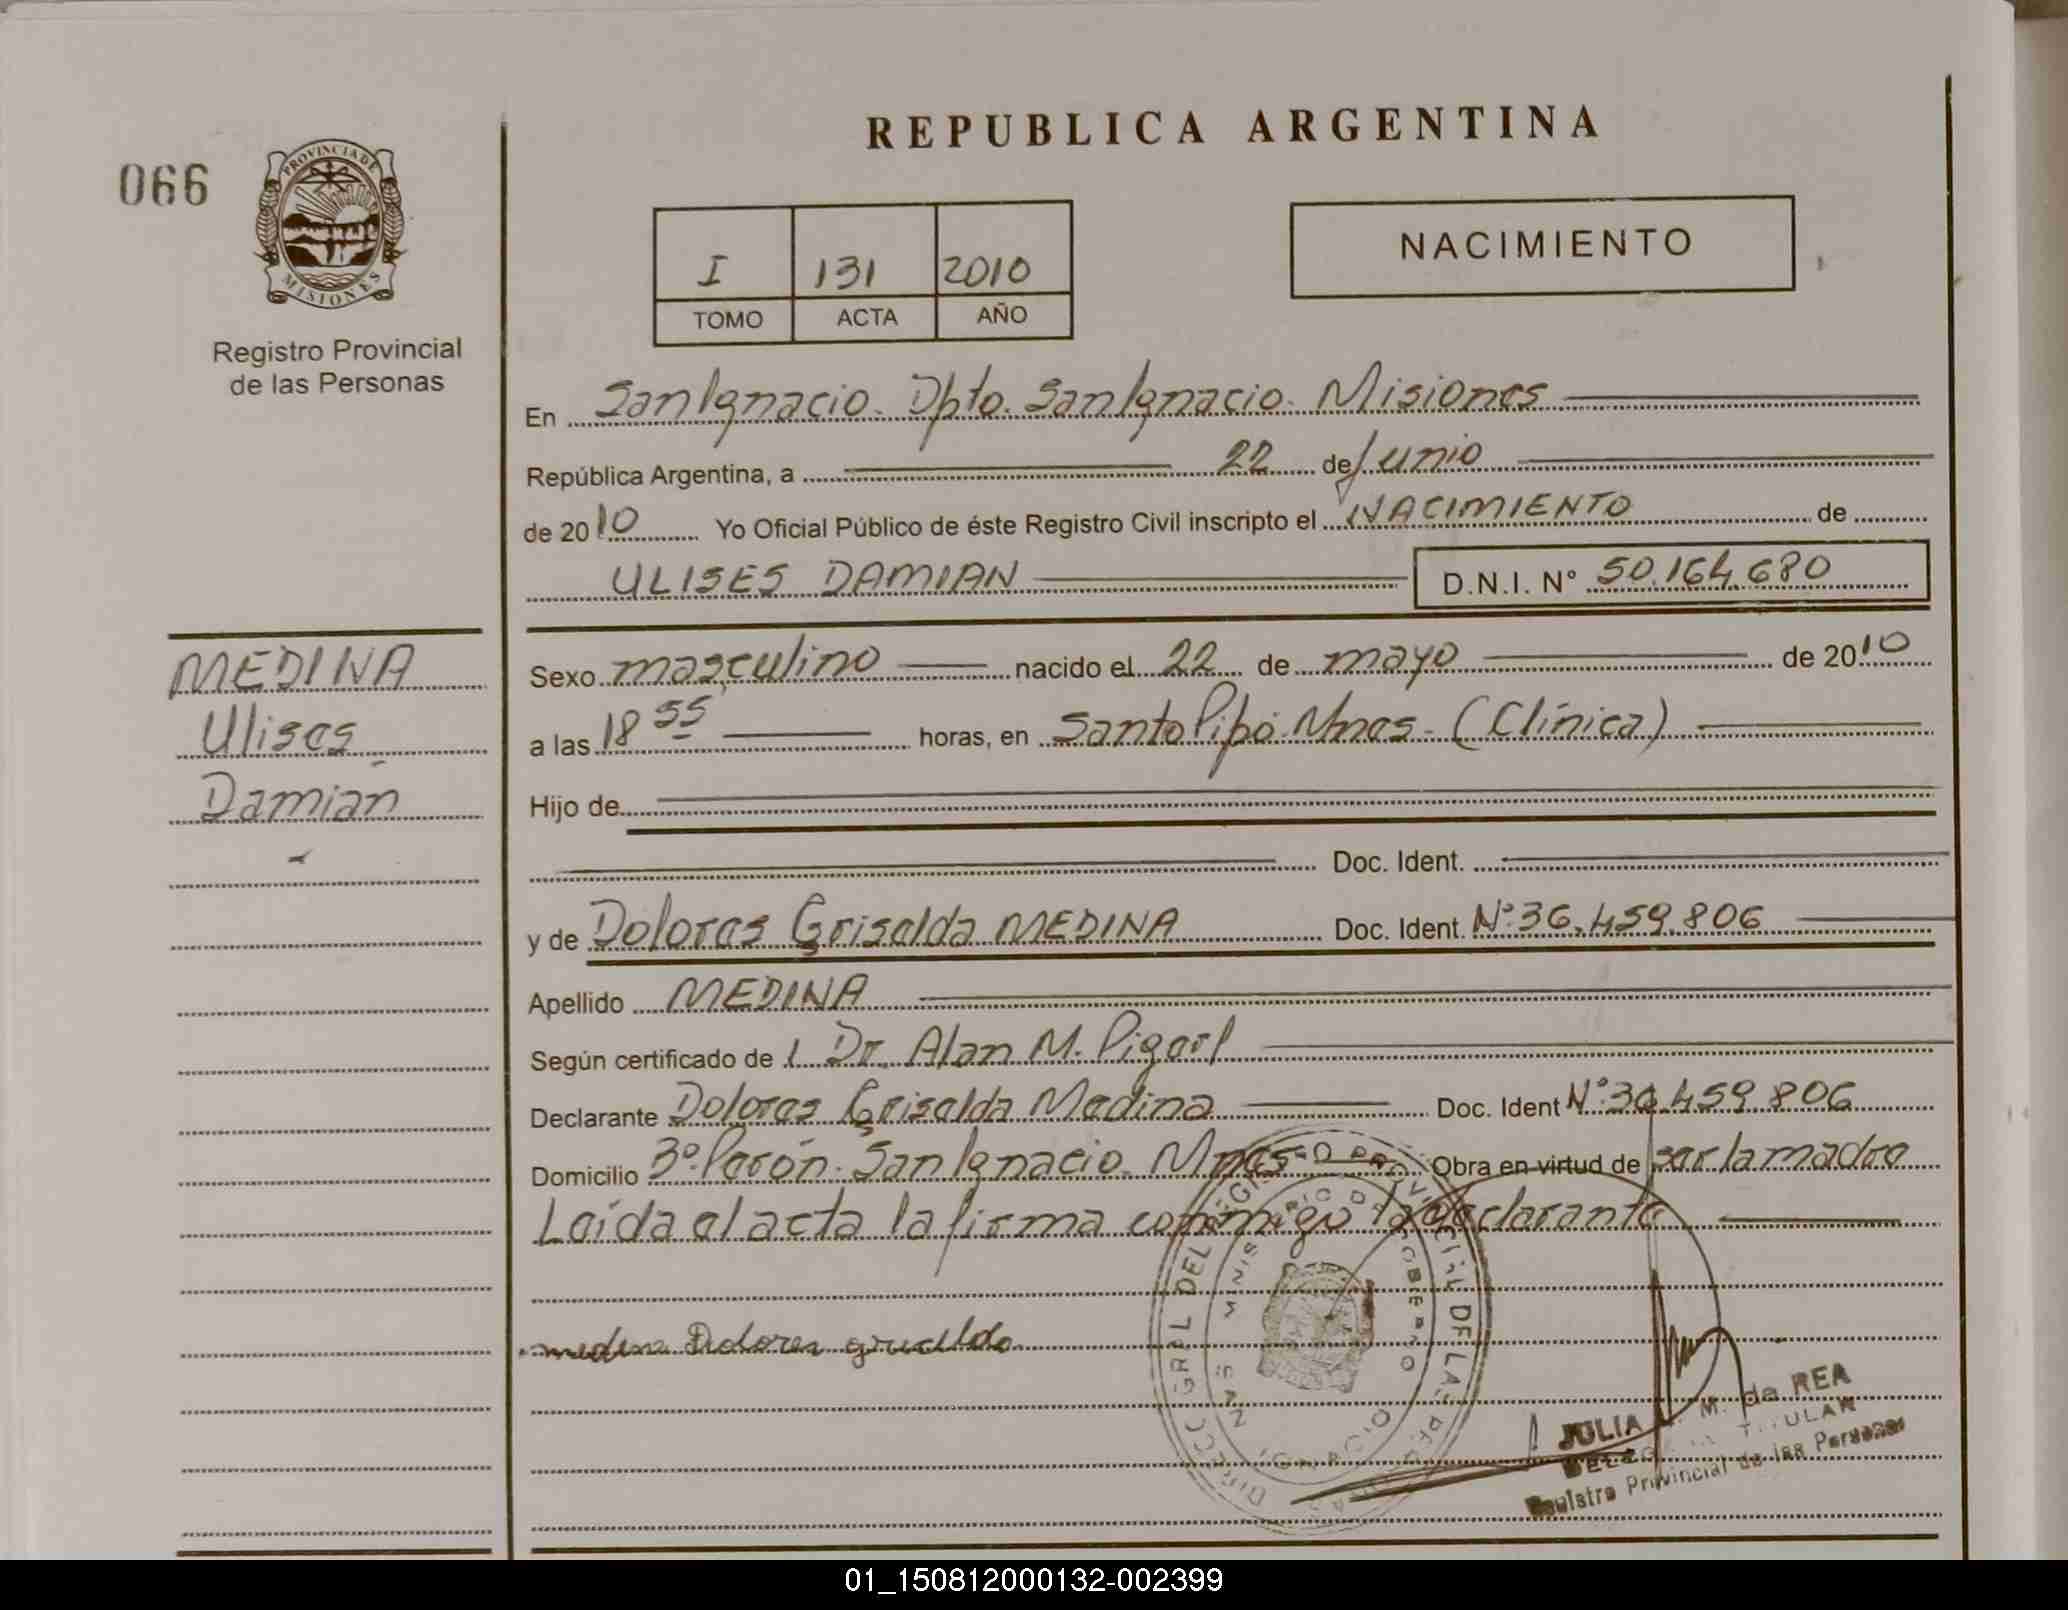 REPUBLICA ARGENTINA
066
PROVINCIA DE
MISIONES
Registro Provincial
de las Personas
I 131 2010
TOMO ACTA AÑO
NACIMIENTO
En San Ignacio. Dpto. San Ignacio. Misiones
República Argentina, a 22 de Junio
de 2010 Yo Oficial Público de éste Registro Civil inscripto el NACIMIENTO de
ULISES DAMIAN D.N.I. N° 50.164.680
MEDINA
Ulises
Damián
Sexo masculino nacido el 22 de mayo de 2010
a las 18 55 horas, en Santo Pipó. Mnes. (Clínica)
Hijo de
Doc. Ident.
y de Dolores Griselda MEDINA Doc. Ident. N° 36.459.806
Apellido MEDINA
Según certificado de l Dr. Alan M.
Declarante Dolores Griselda Medina Doc. Ident N° 36.459.806
Domicilio 3° Perón. San Ignacio. Mnes Obra en virtud de ser la madre
Leída el acta la firma conmigo la declarante
medina Dolores
DIRECC GRAL DEL
JULIA M. de REA
TITULAR
Registro Provincial de las Personas
01_150812000132-002399